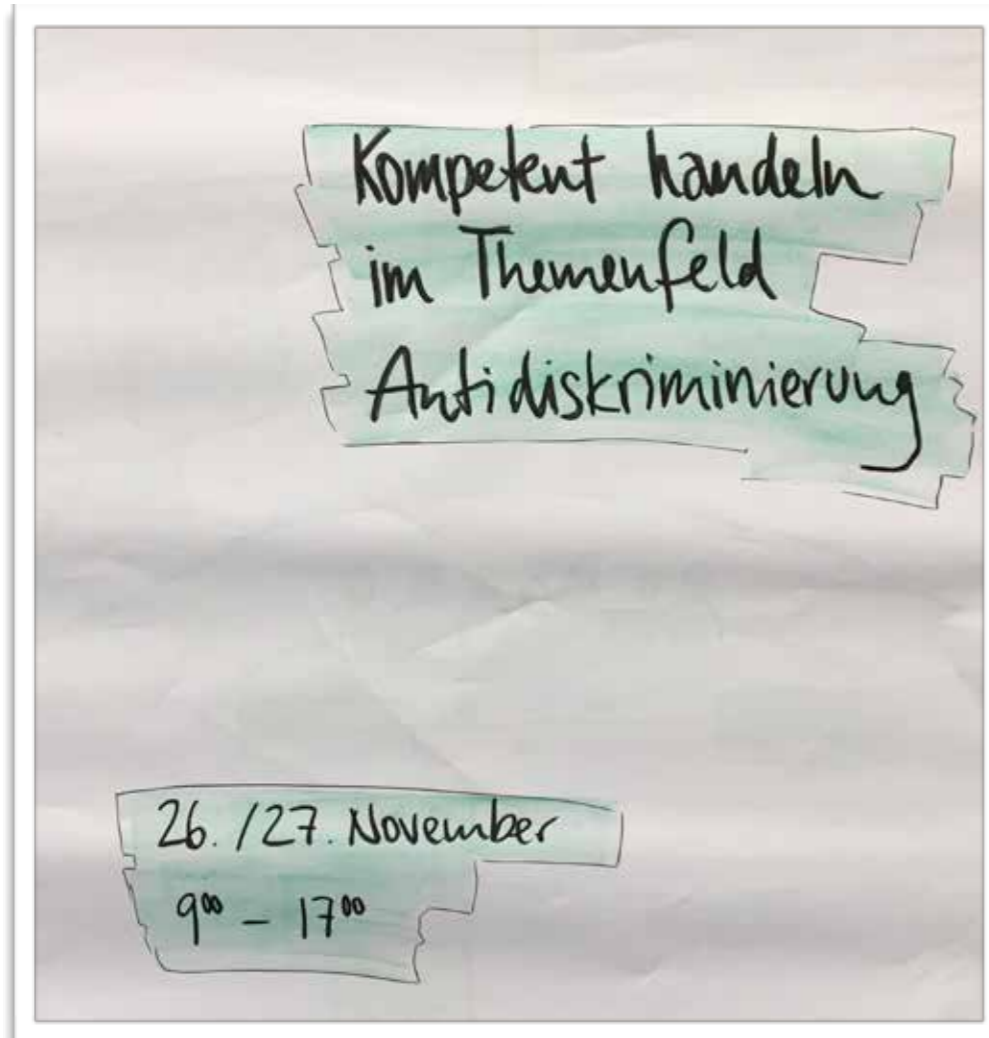 Kompetent handeln
im Themenfeld
Antidiskriminierung
26./27. November
9⁰⁰ – 17⁰⁰